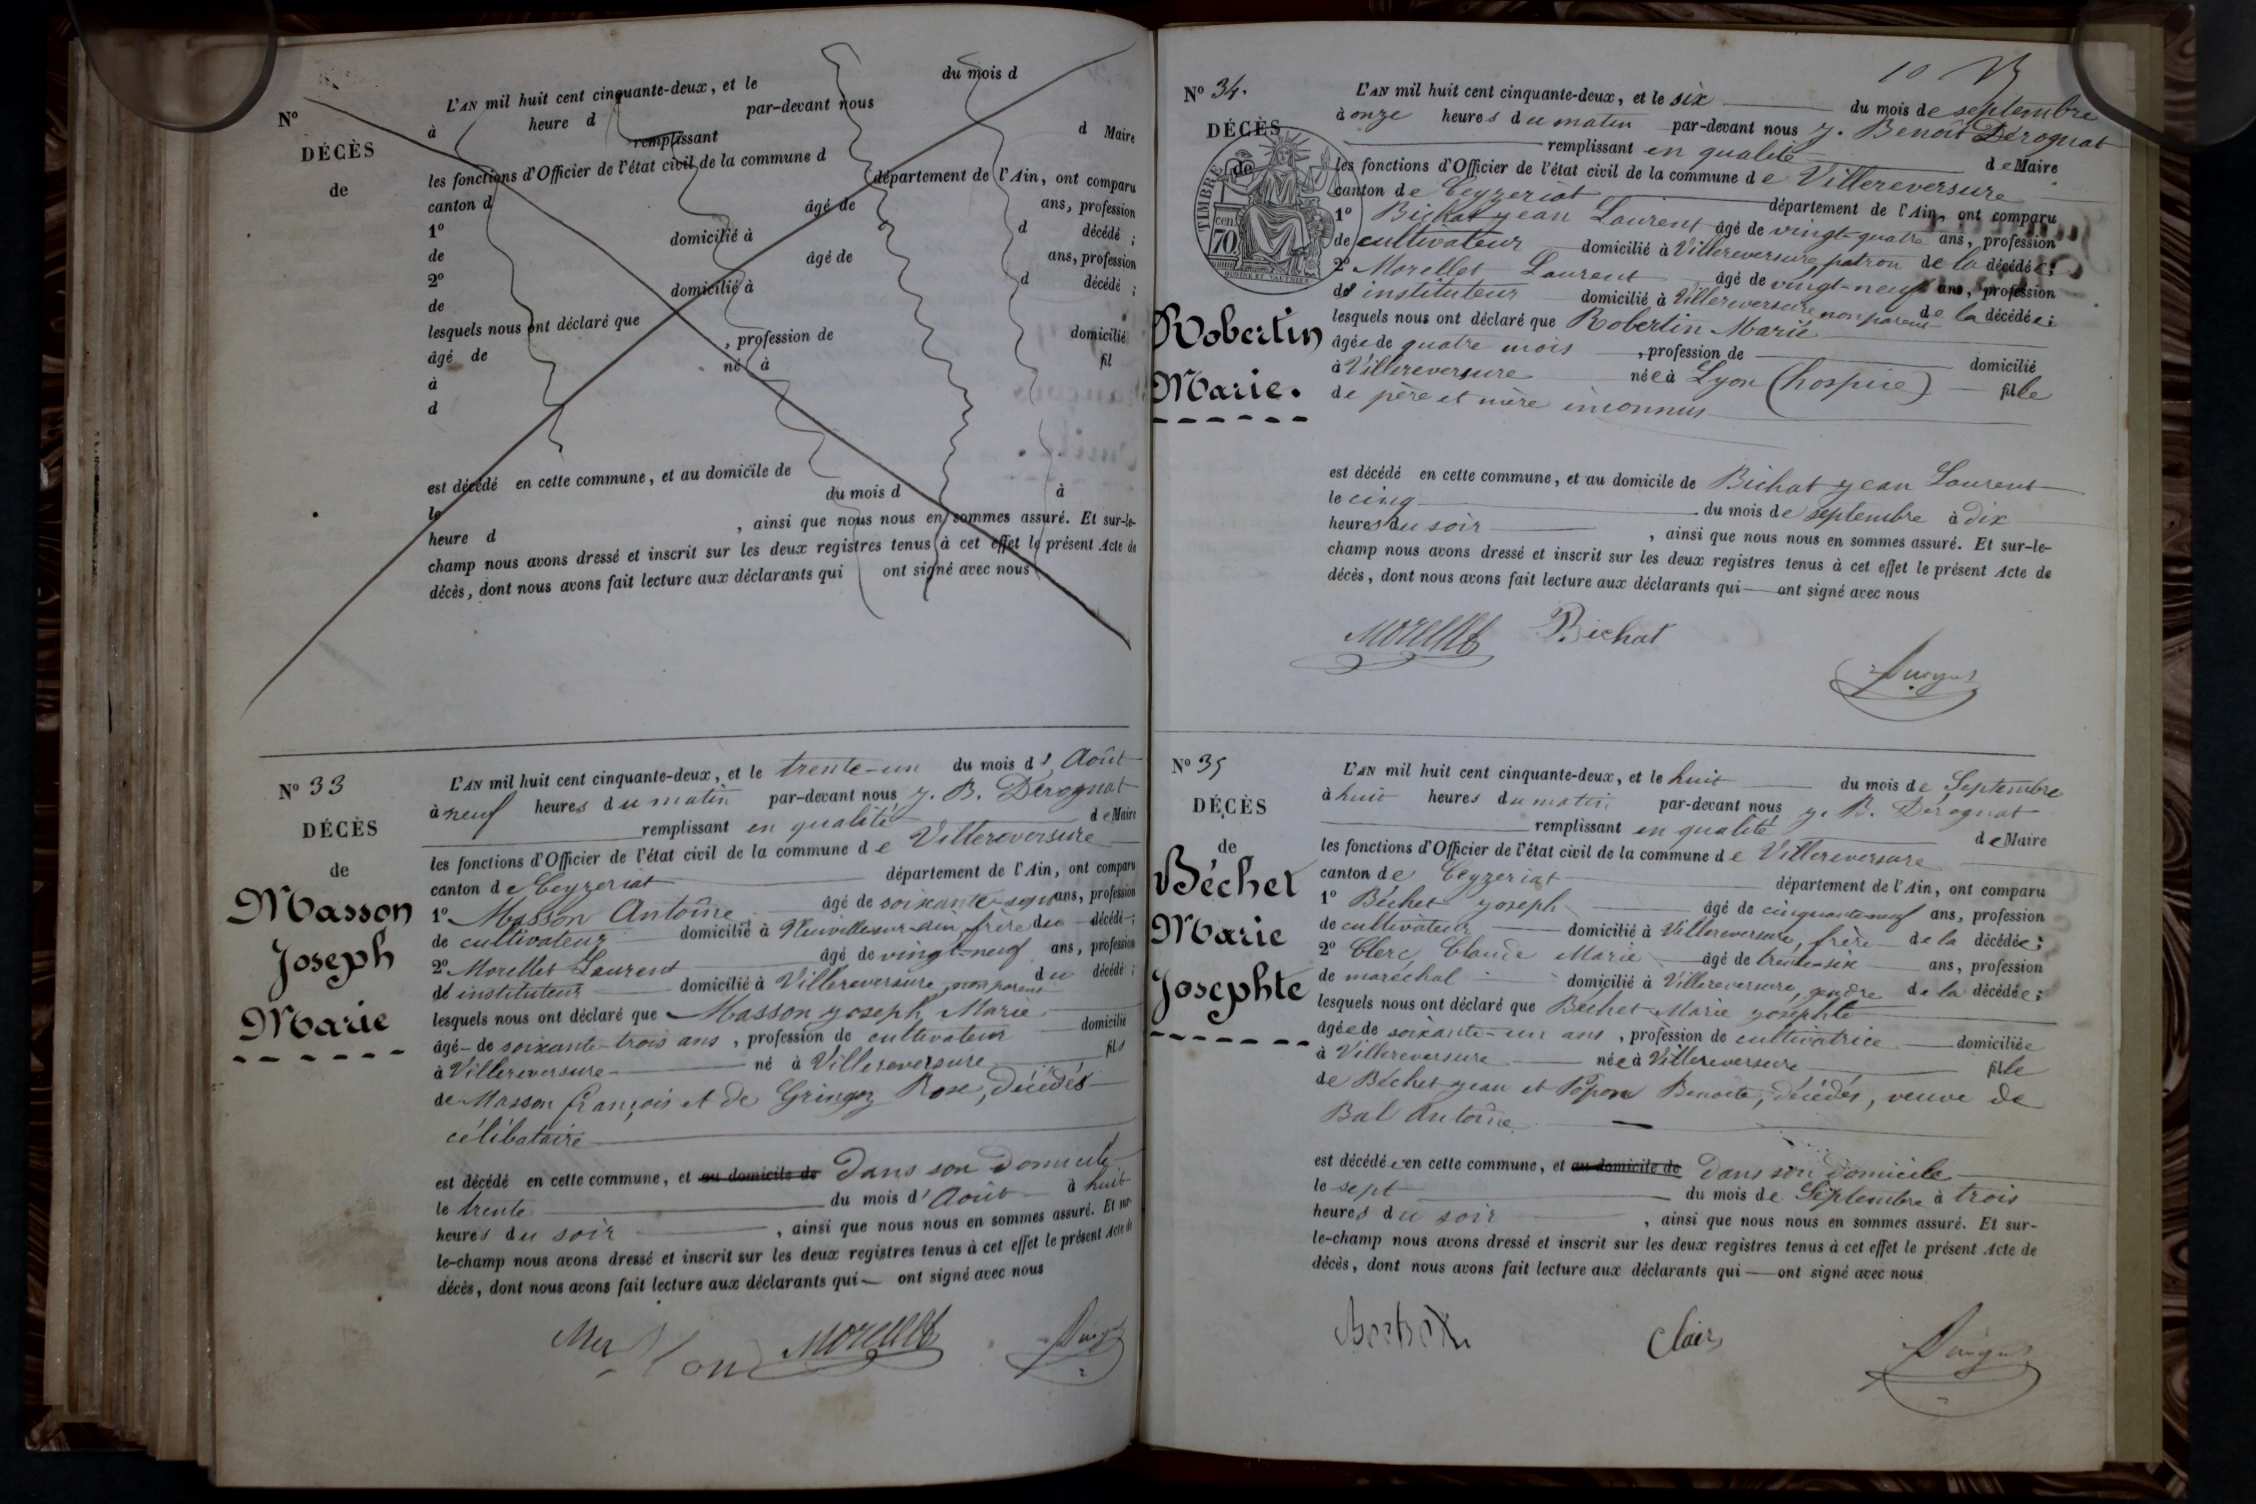 L'AN mil huit cent cinquante-deux, et le du mois d
à heure d par-devant nous
remplissant d Maire
les fonctions d'Officier de l'état civil de la commune d
canton d département de l'Ain, ont comparu
1° âgé de ans, profession
de domicilié à d décédé ;
2° âgé de ans, profession
de domicilié à d décédé ;
lesquels nous ont déclaré que
âgé de , profession de domicilié
à né à fil
d
est décédé en cette commune, et au domicile de
le du mois d à
heure d , ainsi que nous nous en sommes assuré. Et sur-le-
champ nous avons dressé et inscrit sur les deux registres tenus à cet effet le présent Acte de
décès, dont nous avons fait lecture aux déclarants qui ont signé avec nous
N°
DÉCÈS
de
N° 33
DÉCÈS
de
Masson
Joseph
Marie
L'AN mil huit cent cinquante-deux, et le trente-un du mois d' Août
à neuf heures du matin par-devant nous J. B. Dérognat
remplissant en qualité de Maire
les fonctions d'Officier de l'état civil de la commune de Villereversure
canton de Ceyzeriat département de l'Ain, ont comparu
1° Masson Antoine âgé de soixante-sept ans, profession
de cultivateur domicilié à Neuville-sur-ain, frère du décédé ;
2° Morellet Laurent âgé de vingt-neuf ans, profession
d' instituteur domicilié à Villereversure, non parent du décédé ;
lesquels nous ont déclaré que Masson Joseph Marie
âgé de soixante-trois ans , profession de cultivateur domicilié
à Villereversure né à Villereversure fils
de Masson françois et de Gringoz Rose, décédés
célibataire
est décédé en cette commune, et au domicile de Dans son Domicile
le trente du mois d' Août à huit
heures du soir , ainsi que nous nous en sommes assuré. Et sur-
le-champ nous avons dressé et inscrit sur les deux registres tenus à cet effet le présent Acte de
décès, dont nous avons fait lecture aux déclarants qui ont signé avec nous
Morellet
10
N° 34.
DÉCÈS
de
TIMBRE
cen
70
Robertin
Marie.
L'AN mil huit cent cinquante-deux, et le six du mois de septembre
à onze heures du matin par-devant nous J. Benoit Dérognat
remplissant en qualité de Maire
les fonctions d'Officier de l'état civil de la commune de Villereversure
canton de Ceyzeriat département de l'Ain, ont comparu
1° Bichat Jean Laurent âgé de vingt-quatre ans, profession
de cultivateur domicilié à Villereversure, patron de la décédée ;
2° Morellet Laurent âgé de vingt-neuf ans, profession
d' instituteur domicilié à Villereversure non parent de la décédée ;
lesquels nous ont déclaré que Robertin Marie
âgée de quatre mois , profession de domicilié
à Villereversure née à Lyon (hospice) fille
de père et mère inconnus
est décédé en cette commune, et au domicile de Bichat Jean Laurent
le cinq du mois de septembre à dix
heures du soir , ainsi que nous nous en sommes assuré. Et sur-le-
champ nous avons dressé et inscrit sur les deux registres tenus à cet effet le présent Acte de
décès, dont nous avons fait lecture aux déclarants qui ont signé avec nous
Morellet Bichat
N° 35
DÉCÈS
de
Béchet
Marie
Josephte
L'AN mil huit cent cinquante-deux, et le huit du mois de Septembre
à huit heures du matin par-devant nous J. B. Dérognat
remplissant en qualité de Maire
les fonctions d'Officier de l'état civil de la commune de Villereversure
canton de Ceyzeriat département de l'Ain, ont comparu
1° Béchet Joseph âgé de cinquante-neuf ans, profession
de cultivateur domicilié à Villereversure, frère de la décédée ;
2° Clerc Claude Marie âgé de trente-six ans, profession
de maréchal domicilié à Villereversure, gendre de la décédée ;
lesquels nous ont déclaré que Béchet Marie Josephte
âgée de soixante-un ans , profession de cultivatrice domiciliée
à Villereversure née à Villereversure fille
de Béchet Jean et Popon Benoite, décédés, veuve de
Bal Antoine
est décédée en cette commune, et au domicile de Dans son Domicile
le sept du mois de Septembre à trois
heures du soir , ainsi que nous nous en sommes assuré. Et sur-
le-champ nous avons dressé et inscrit sur les deux registres tenus à cet effet le présent Acte de
décès, dont nous avons fait lecture aux déclarants qui ont signé avec nous